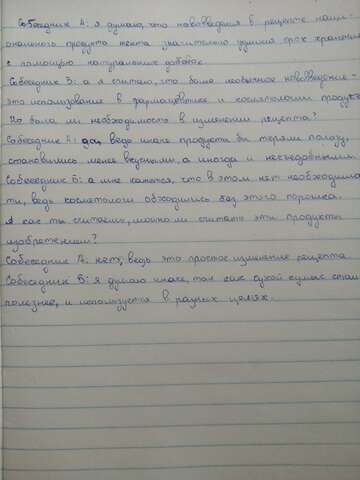 Собеседник А: я думаю, что нововведения в рецепте наци-
онального продукта текта значительно удлинил срок хранения
с помощью натуральных добавок
Собеседник Б: а я считаю, что более необычное нововведение-
это использование в фармацевтике и косметологии продукта
Но была ли необходимость в изменении рецепта?
Собеседник А: да, ведь иначе продукта бы теряли пользу,
становились менее вкусными, а иногда и несъедобными
Собеседник Б: а мне кажется, что в этом нет необходимос
ти, ведь косметологи обходились без этого порошка.
А как ты считаешь, можно ли считать эти продукты
изобретением?
Собеседник А: нет, ведь это простое изменение рецепта
Собеседник Б: я думаю иначе, так как сухой сумах стал
полезнее, и используется в разных целях.